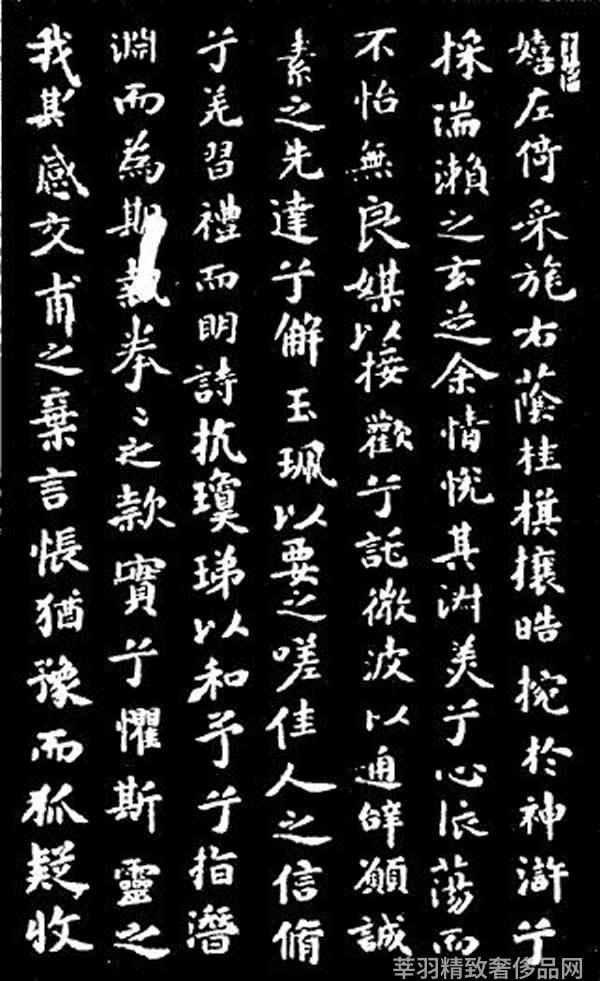 嬉左倚采旄右蔭桂棋攘晧捥於神滸兮
採湍瀨之玄芝余情悅其淑美兮心依蕩而
不怡無良媒以接歡兮託微波以通辭願誠
素之先達兮解玉珮以要之嗟佳人之信脩
兮羌習禮而明詩抗瓊珶以和予兮指潛
淵而為期執拳〻之款實兮懼斯靈之
我其感交甫之棄言悵猶豫而狐疑收
莘羽精致奢侈品网